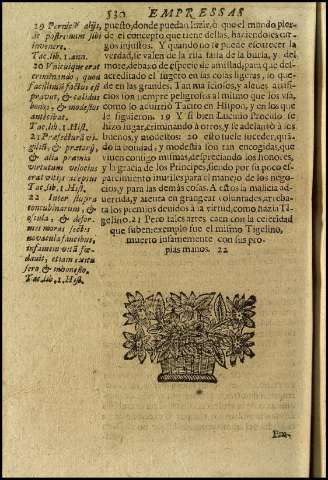 530 EMPRESSAS
29 Pernicie alijs,
ac postremum sibi
invenere.
Tac. lib. 1. ann.
20 Vnicuique erat
criminando, quod
facillimū factu est
pravus, & calidus
bonos, & modestos
anteibat.
Tac. lib. 1. Hist.
21 Præfecturā vi-
gilū, & prætorij,
& alia præmia
virtutum velocius
erat vitijs adeptus
Tac. lib. 1. Hist.
22 Inter stupra
concubinarum, &
oscula, & defor-
mes moras sectis
novacula faucibus,
infamem vitā fœ-
davit, etiam exitu
sero & inhonesto.
Tac. lib. 1. Hist.
puesto, donde puedan luzir, o que el mundo pier-
da el concepto que tiene dellas, haziendoles car-
gos injustos. Y quando no se puede escurecer la
verdad, se valen de la risa falsa de la burla, y del
mote, debaxo de especie de amistad, para que des-
acreditado el sugeto en las cosas ligeras, lo que-
de en las grandes. Tan maliciosos, y aleues artifi-
cios son siempre peligrosos al mismo que los vsa,
como lo aduirtiò Tacito en Hispon, y en los que
le siguieron. 19 Y si bien Lucinio Proculo se
hizo lugar, criminando a otros, y se adelantò a los
buenos, y modestos 20 esto suele suceder, quā-
do la bondad, y modestia son tan encogidas, que
viuen consigo mismas, despreciando los honores,
y la gracia de los Principes, siendo por su poco es-
parcimiento inutiles para el manejo de los nego-
cios, y para las demás cosas. A estos la malicia ad-
uertida, y atenta en grangear voluntades, arreba-
ta los premios deuidos à la virtud, como hazia Ti-
gelino. 21 Pero tales artes caen con la celeridad
que suben: exemplo fue el mismo Tigelino,
muerto infamemente con sus pro-
pias manos. 22